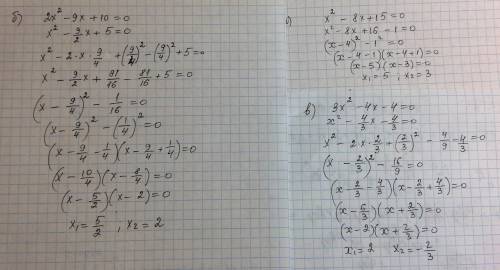 б) 2x² - 9x + 10 = 0
x² - 9/2 x + 5 = 0
x² - 2 · x · 9/4 + (9/4)² - (9/4)² + 5 = 0
x² - 9/2 x + 81/16 - 81/16 + 5 = 0
(x - 9/4)² - 1/16 = 0
(x - 9/4)² - (1/4)² = 0
(x - 9/4 - 1/4)(x - 9/4 + 1/4) = 0
(x - 10/4)(x - 8/4) = 0
(x - 5/2)(x - 2) = 0
x₁ = 5/2 , x₂ = 2
x² - 8x + 15 = 0
x² - 8x + 16 - 1 = 0
(x - 4)² - 1² = 0
(x - 4 - 1)(x - 4 + 1) = 0
(x - 5)(x - 3) = 0
x₁ = 5 , x₂ = 3
в) 3x² - 4x - 4 = 0
x² - 4/3 x - 4/3 = 0
x² - 2 · x · 2/3 + (2/3)² - 4/9 - 4/3 = 0
(x - 2/3)² - 16/9 = 0
(x - 2/3 - 4/3)(x - 2/3 + 4/3) = 0
(x - 6/3)(x + 2/3) = 0
(x - 2)(x + 2/3) = 0
x₁ = 2 x₂ = - 2/3